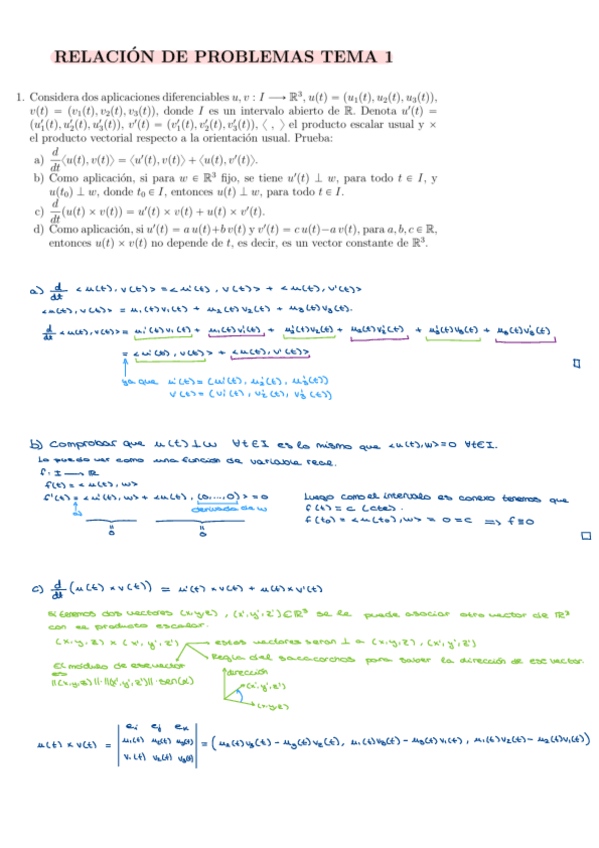 RELACIÓN DE PROBLEMAS TEMA 1
1. Considera dos aplicaciones diferenciables u, v : I ⟶ ℝ³, u(t) = (u₁(t), u₂(t), u₃(t)),
v(t) = (v₁(t), v₂(t), v₃(t)), donde I es un intervalo abierto de ℝ. Denota u′(t) =
(u′₁(t), u′₂(t), u′₃(t)), v′(t) = (v′₁(t), v′₂(t), v′₃(t)), ⟨ , ⟩ el producto escalar usual y ×
el producto vectorial respecto a la orientación usual. Prueba:
a) d/dt ⟨u(t), v(t)⟩ = ⟨u′(t), v(t)⟩ + ⟨u(t), v′(t)⟩.
b) Como aplicación, si para w ∈ ℝ³ fijo, se tiene u′(t) ⊥ w, para todo t ∈ I, y
u(t₀) ⊥ w, donde t₀ ∈ I, entonces u(t) ⊥ w, para todo t ∈ I.
c) d/dt (u(t) × v(t)) = u′(t) × v(t) + u(t) × v′(t).
d) Como aplicación, si u′(t) = a u(t)+b v(t) y v′(t) = c u(t)−a v(t), para a, b, c ∈ ℝ,
entonces u(t) × v(t) no depende de t, es decir, es un vector constante de ℝ³.
a) d/dt <u(t), v(t)> = <u'(t), v(t)> + <u(t), v'(t)>
<u(t), v(t)> = u₁(t)v₁(t) + u₂(t)v₂(t) + u₃(t)v₃(t).
d/dt <u(t), v(t)> = u₁'(t)v₁(t) + u₁(t)v₁'(t) + u₂'(t)v₂(t) + u₂(t)v₂'(t) + u₃'(t)v₃(t) + u₃(t)v₃'(t)
= <u'(t), v(t)> + <u(t), v'(t)>
ya que u'(t) = (u₁'(t), u₂'(t), u₃'(t))
v'(t) = (v₁'(t), v₂'(t), v₃'(t))
b) Comprobar que u(t) ⊥ w ∀t∈I es lo mismo que <u(t), w> = 0 ∀t∈I.
Lo puedo ver como una función de variable real.
f: I ⟶ ℝ
f(t) = <u(t), w>
f'(t) = <u'(t), w> + <u(t), (0,...,0)> = 0
derivada de w
0 0
Luego como el intervalo es conexo tenemos que
f(t) = c (cte).
f(t₀) = <u(t₀), w> = 0 = c ⟹ f ≡ 0
c) d/dt (u(t) × v(t)) = u'(t) × v(t) + u(t) × v'(t)
Si tenemos dos vectores (x,y,z), (x',y',z') ∈ ℝ³ se le puede asociar otro vector de ℝ³
con el producto escalar.
(x,y,z) × (x',y',z') estos vectores serán ⊥ a (x,y,z), (x',y',z')
Regla del sacacorchos para saber la dirección de ese vector.
El módulo de ese vector
es
||(x,y,z)||·||(x',y',z')||·sen(α)
dirección
(x',y',z')
(x,y,z)
u(t) × v(t) = | eᵢ eⱼ eₖ |
| u₁(t) u₂(t) u₃(t) | = (u₂(t)v₃(t) − u₃(t)v₂(t), u₁(t)v₃(t) − u₃(t)v₁(t), u₁(t)v₂(t) − u₂(t)v₁(t))
| v₁(t) v₂(t) v₃(t) |